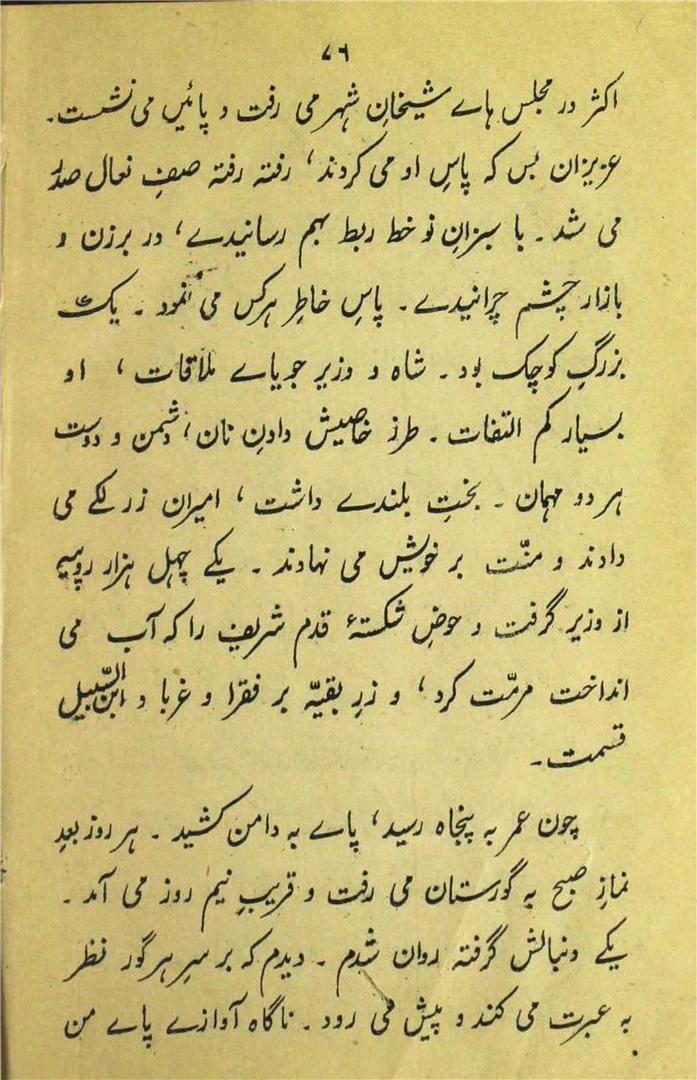 ۷۶
اکثر در مجلس ہاے شیخانِ شہر می رفت و پائیں می نشست۔
عزیزان بس کہ پاسِ او می کردند، رفتہ رفتہ صفِ نعال صدر
می شد۔ با سبزانِ نو خط ربط بہم رسانیدے، در برزن و
بازار چشم چرانیدے۔ پاسِ خاطرِ ہرکس می نمود۔ یک
بزرگِ کوچک بود۔ شاہ و وزیر جویاے ملاقات، او
بسیار کم التفات۔ طرز خاصیش دادنِ نان، دشمن و دوست
ہر دو مہمان۔ بختِ بلندے داشت، امیران زر لکے می
دادند و منّت بر خویش می نہادند۔ یکے چہل ہزار روپیہ
از وزیر گرفت و حوضِ شکستۂ قدم شریف را کہ آب می
انداخت مرمّت کرد، و زرِ بقیّہ بر فقرا و غربا و ابن السّبیل
قسمت۔
چون عمر بہ پنجاہ رسید، پاے بہ دامن کشید۔ ہر روز بعدِ
نمازِ صبح بہ گورستان می رفت و قریبِ نیم روز می آمد۔
یکے دنبالش گرفتہ رواں شدم۔ دیدم کہ بر سرِ ہر گور نظر
بہ عبرت می کند و پیش می رود۔ ناگاہ آوازے پاے من